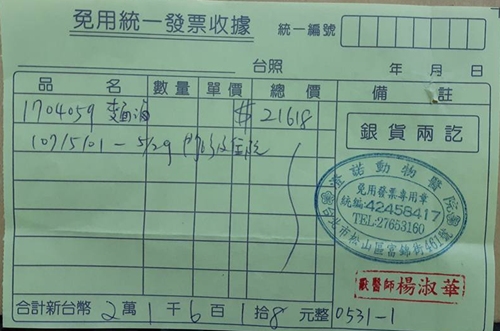 免用統一發票收據
統一編號
台照 年 月 日
品名 數量 單價 總價 備註
1704059 $ 21618
107/5/01 - 5/29
銀貨兩訖
諾動物醫院
免用發票專用章
統編:42458417
TEL:27653160
台北市松山區富錦街461號
獸醫師 楊淑華
合計新台幣 2 萬 1 千 6 百 1 拾 8 元整 0531-1